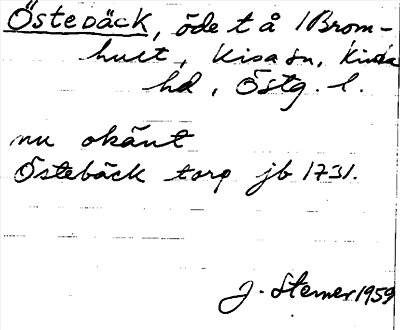 Östebäck, öde t å /Brom-
hult, Kisa sn, Kinda
hd, Östg. l.
nu okänt
Östebäck torp jb 1731.
J. Sterner 1959